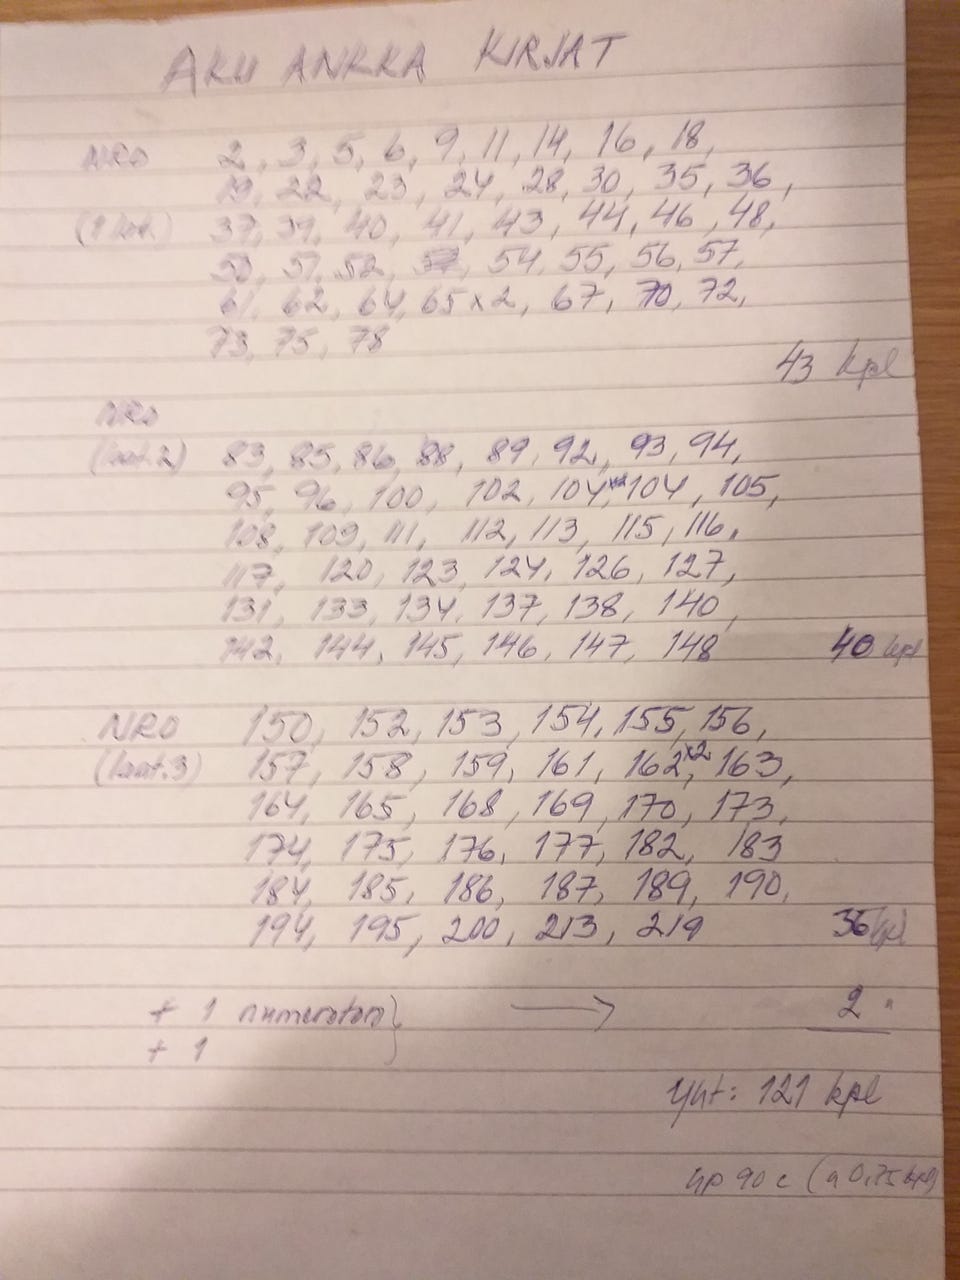 AKU ANKKA KIRJAT
NRO 2, 3, 5, 6, 9, 11, 14, 16, 18,
19, 22, 23, 24, 28, 30, 35, 36,
37, 39, 40, 41, 43, 44, 46, 48,
50, 51, 52, 54, 55, 56, 57,
61, 62, 64, 65 x 2, 67, 70, 72,
73, 75, 78
43 kpl
NRO
(laat.2) 83, 85, 86, 88, 89, 92, 93, 94,
95, 96, 100, 102, 104 104, 105,
108, 109, 111, 112, 113, 115, 116,
117, 120, 123, 124, 126, 127,
131, 133, 134, 137, 138, 140,
142, 144, 145, 146, 147, 148 40 kpl
NRO 150, 152, 153, 154, 155, 156,
(laat.3) 157, 158, 159, 161, 162 x2, 163,
164, 165, 168, 169, 170, 173,
174, 175, 176, 177, 182, 183
184, 185, 186, 187, 189, 190,
194, 195, 200, 213, 219 36 kpl
+ 1 numeroton} → 2 "
+ 1
Yht: 121 kpl
hp 90 € (a 0,75 kpl)